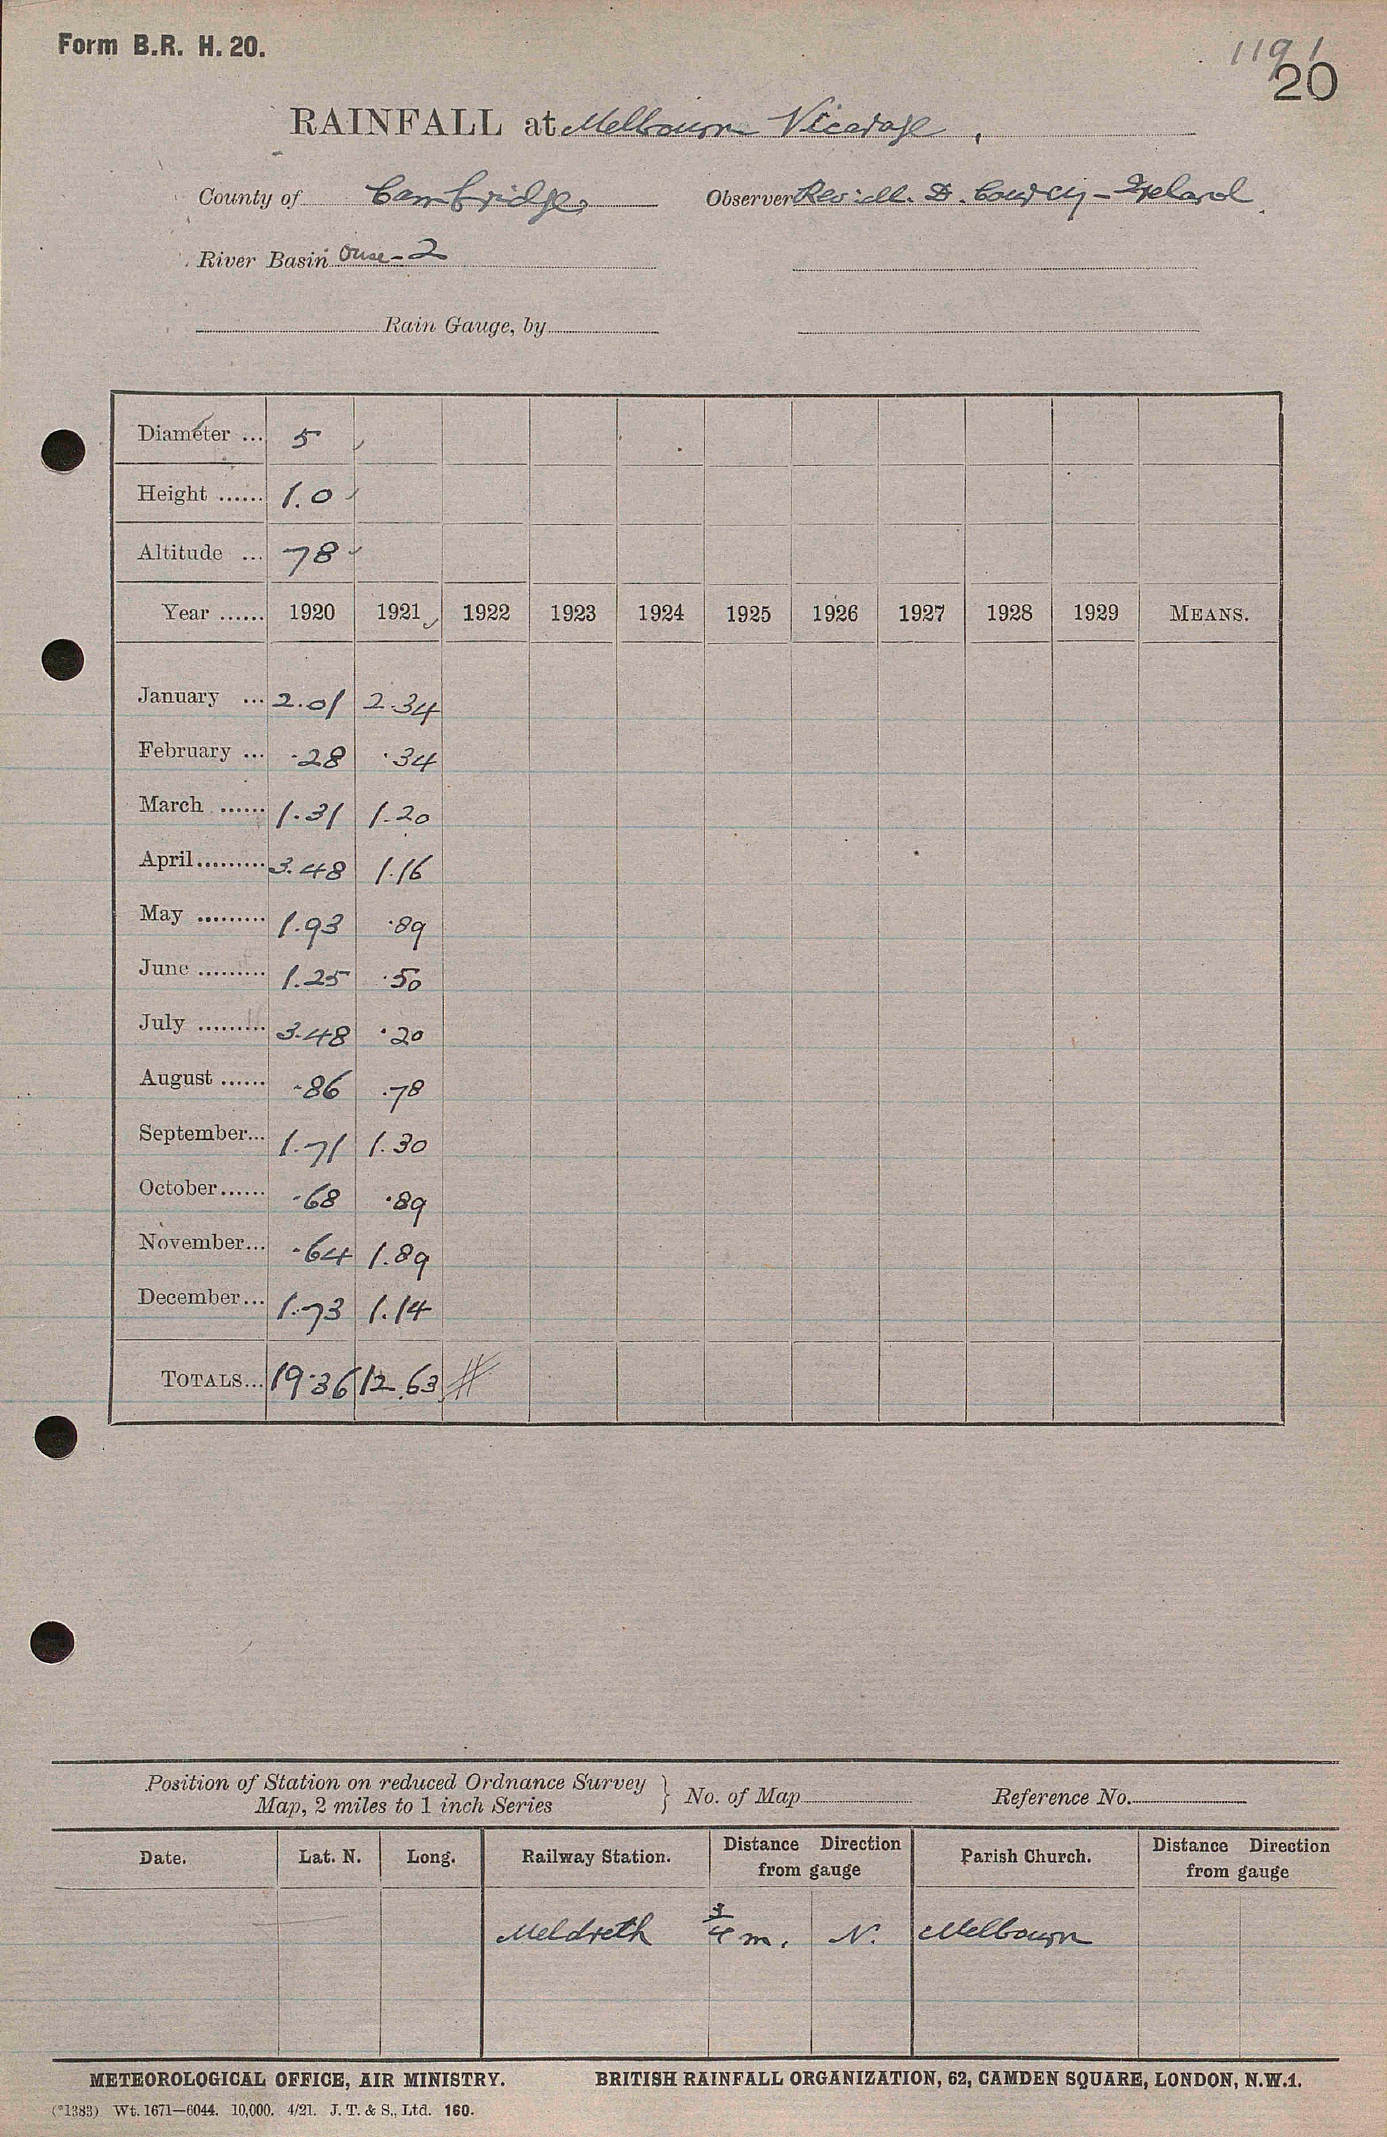 Form B.R. H. 20.
1191
20
RAINFALL at Melbourn Vicarage.
County of Cambridge Observer Rev. M. D.
River Basin Ouse-2
Rain Gauge, by
Diameter ... 5
Height ...... 1.0
Altitude ... 78
Year ...... 1920 1921 1922 1923 1924 1925 1926 1927 1928 1929 MEANS.
January ... 2.01 2.34
February ... .28 .34
March ...... 1.31 1.20
April......... 3.48 1.16
May ......... 1.93 .89
June ......... 1.25 .50
July ......... 3.48 .20
August ...... .86 .78
September... 1.71 1.30
October...... .68 .89
November... .64 1.89
December... 1.73 1.14
TOTALS... 19.36 12.63 #
Position of Station on reduced Ordnance Survey
Map, 2 miles to 1 inch Series } No. of Map Reference No.
Date. Lat. N. Long. Railway Station. Distance Direction from gauge Parish Church. Distance Direction from gauge
Meldreth 3/4 m. N. Melbourn
METEOROLOGICAL OFFICE, AIR MINISTRY. BRITISH RAINFALL ORGANIZATION, 62, CAMDEN SQUARE, LONDON, N.W.1.
(*1383) Wt. 1671—6044. 10,000. 4/21. J. T. & S., Ltd. 160.